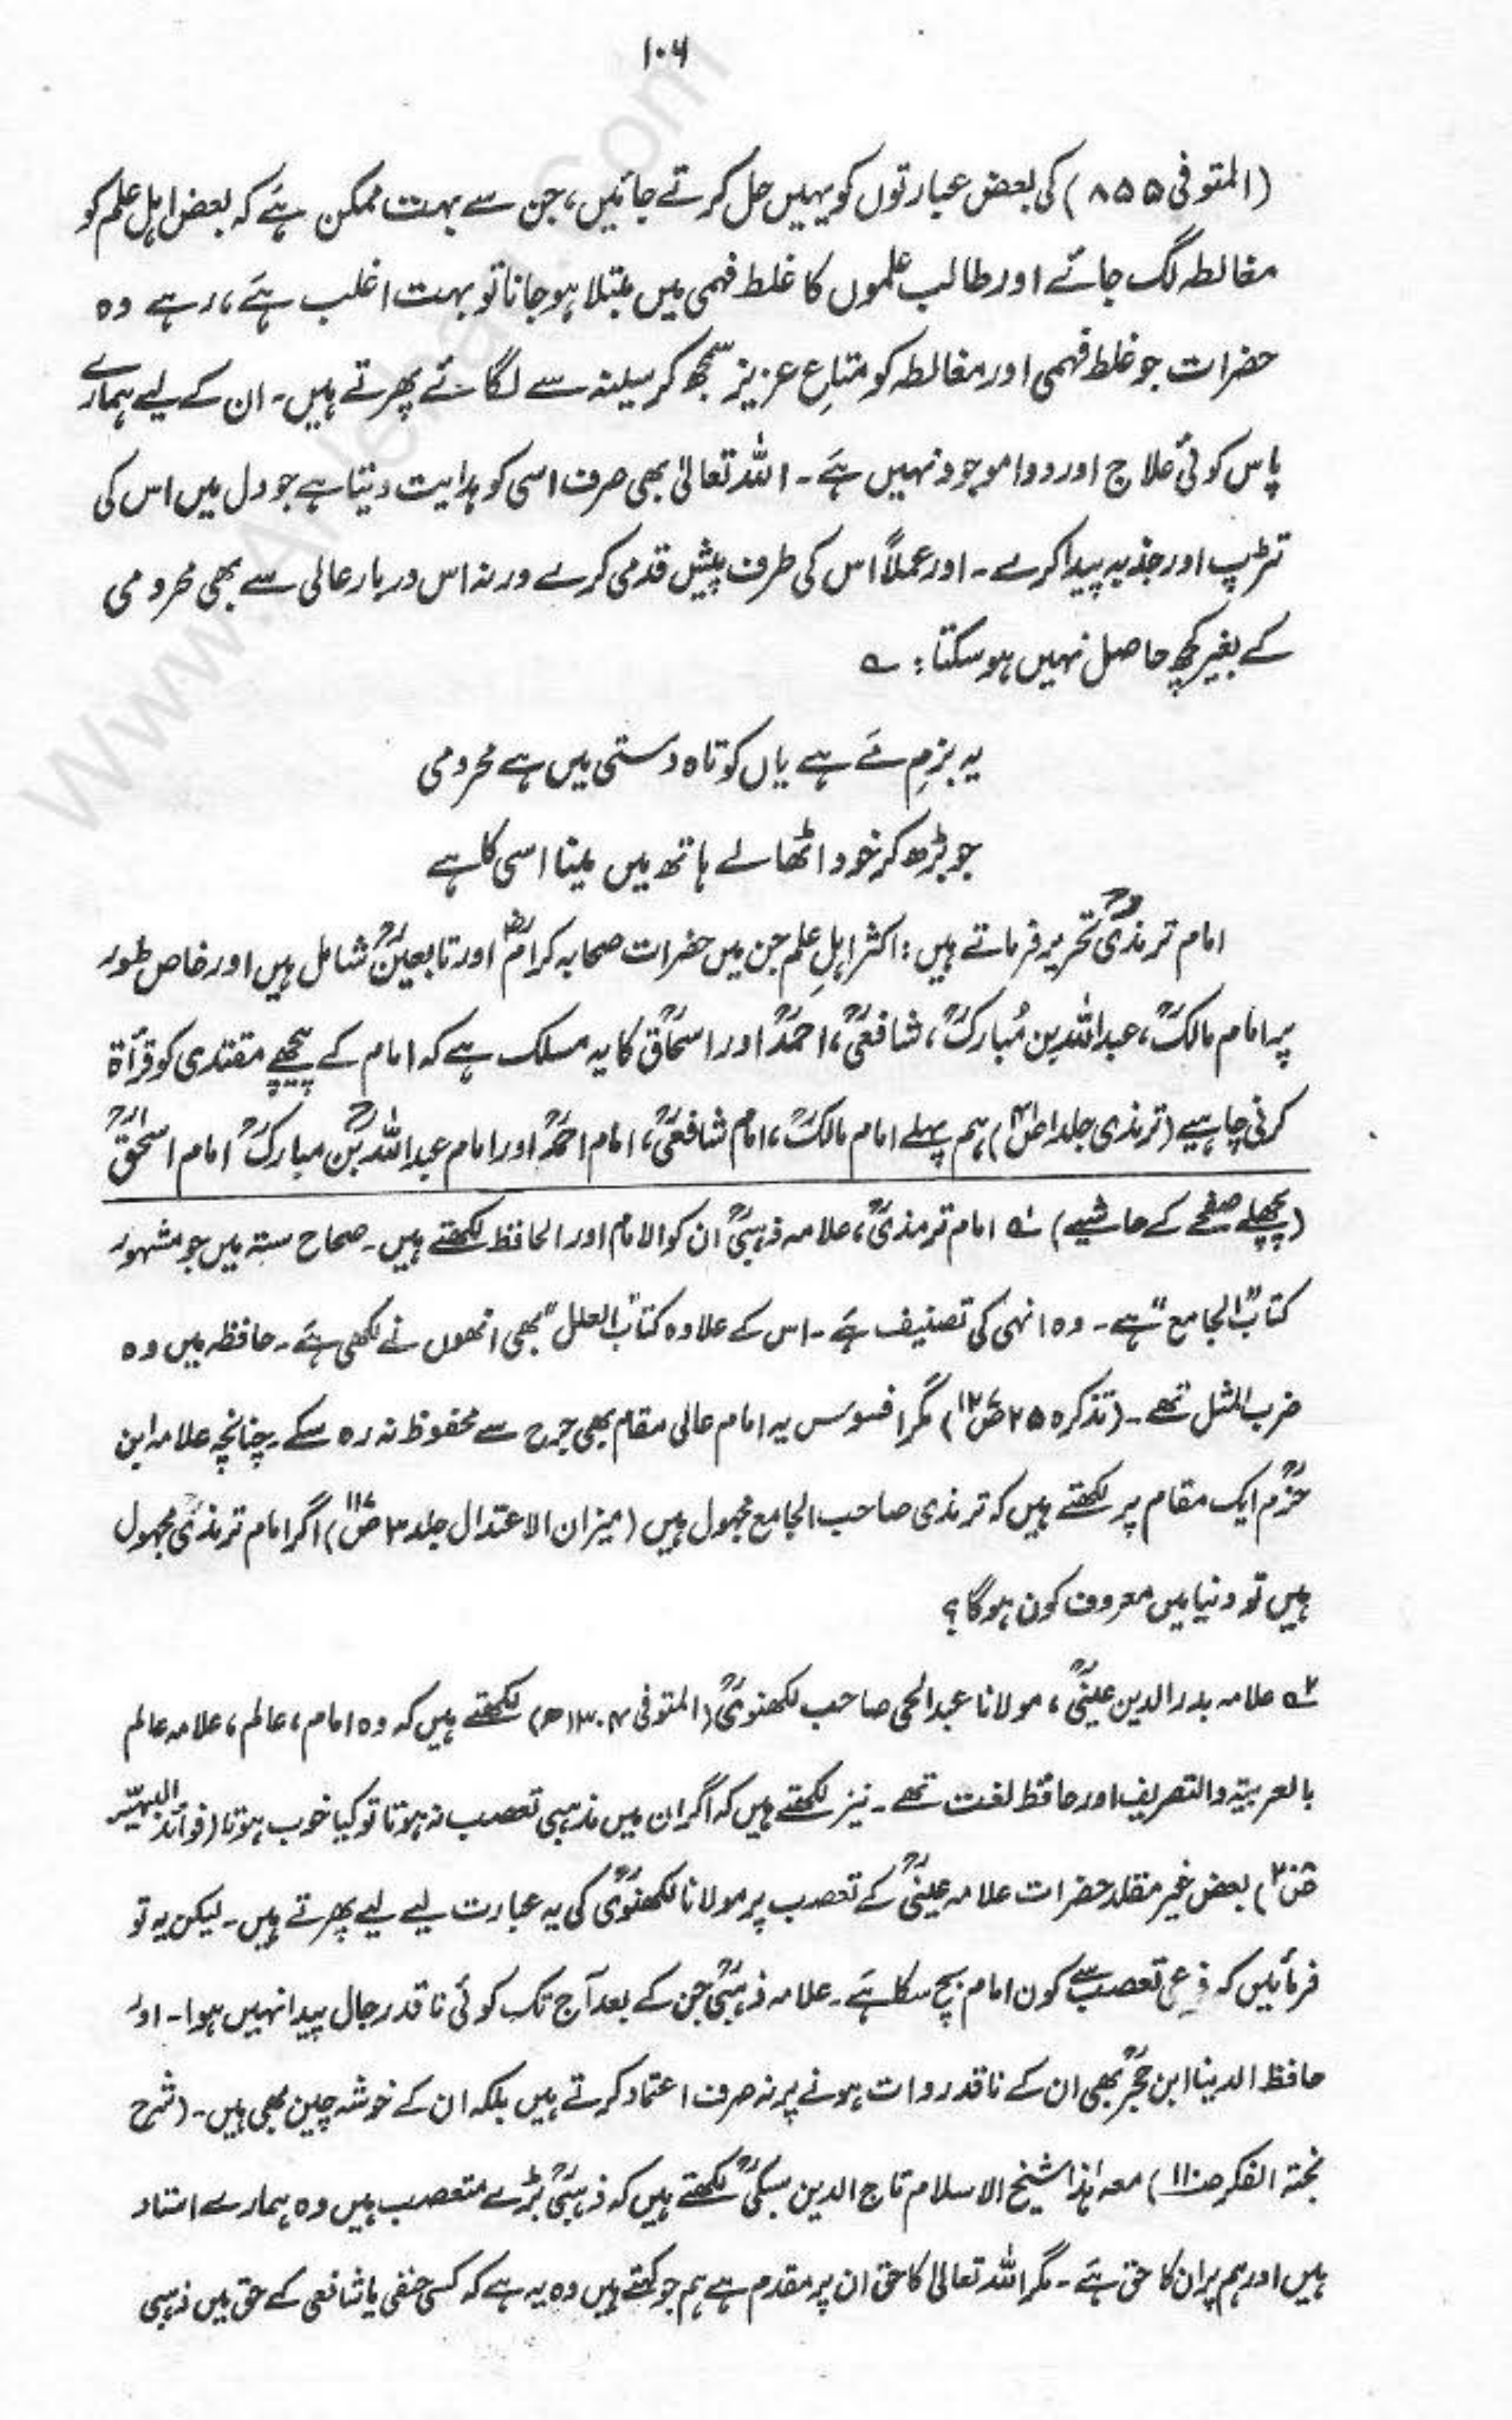 ۱۰۶
(المتوفی ۸۵۵) کی بعض عبارتوں کو یہیں حل کرتے جائیں، جن سے بہت ممکن ہے کہ بعض اہل علم کو
مغالطہ لگ جائے اور طالب علموں کا غلط فہمی میں مبتلا ہو جانا تو بہت اغلب ہے، رہے وہ
حضرات جو غلط فہمی اور مغالطہ کو متاعِ عزیز سمجھ کر سینہ سے لگائے پھرتے ہیں۔ ان کے لیے ہمارے
پاس کوئی علاج اور دوا موجود نہیں ہے۔ اللہ تعالیٰ بھی صرف اسی کو ہدایت دیتا ہے جو دل میں اس کی
تڑپ اور جذبہ پیدا کرے۔ اور عملاً اس کی طرف پیش قدمی کرے ورنہ اس دربار عالی سے بھی محرومی
کے بغیر کچھ حاصل نہیں ہو سکتا: ؎
یہ بزمِ مَے ہے یاں کوتاہ دستی میں ہے محرومی
جو بڑھ کر خود اٹھا لے ہاتھ میں مینا اسی کا ہے
امام ترمذیؒ تحریر فرماتے ہیں: اکثر اہلِ علم جن میں حضرات صحابہ کرامؓ اور تابعینؒ شامل ہیں اور خاص طور
پر امام مالکؒ، عبداللہ بن مُبارکؒ، شافعیؒ، احمدؒ اور اسحاقؒ کا یہ مسلک ہے کہ امام کے پیچھے مقتدی کو قرأۃ
کرنی چاہیے (ترمذی جلد ۱ ص) ہم پہلے امام مالکؒ، امام شافعیؒ، امام احمدؒ اور امام عبداللہ بن مبارکؒ امام اسحٰقؒ
(پچھلے صفحے کے حاشیے) ۱؎ امام ترمذیؒ، علامہ ذہبیؒ ان کو الامام اور الحافظ لکھتے ہیں۔ صحاح ستہ میں جو مشہور
کتاب "الجامع" ہے۔ وہ انہی کی تصنیف ہے۔ اس کے علاوہ کتاب "العلل" بھی انھوں نے لکھی ہے۔ حافظہ میں وہ
ضرب المثل تھے۔ (تذکرہ ص) مگر افسوس یہ امام عالی مقام بھی جرح سے محفوظ نہ رہ سکے۔ چنانچہ علامہ ابن
حزمؒ ایک مقام پر لکھتے ہیں کہ ترمذی صاحب الجامع مجہول ہیں (میزان الاعتدال جلد ۳ ص۱۱۷) اگر امام ترمذیؒ مجہول
ہیں تو دنیا میں معروف کون ہوگا؟
۲؎ علامہ بدر الدین عینیؒ، مولانا عبدالحی صاحب لکھنویؒ (المتوفی ۱۳۰۴ھ) لکھتے ہیں کہ وہ امام، عالم، علامہ عالم
بالعربیۃ والتصریف اور حافظ لغت تھے۔ نیز لکھتے ہیں کہ اگر ان میں مذہبی تعصب نہ ہوتا تو کیا خوب ہوتا (فوائد البہیّہ
ص) بعض غیر مقلد حضرات علامہ عینیؒ کے تعصب پر مولانا لکھنویؒ کی یہ عبارت لیے لیے پھرتے ہیں۔ لیکن یہ تو
فرمائیں کہ فرعی تعصب سے کون امام بچ سکا ہے۔ علامہ ذہبیؒ جن کے بعد آج تک کوئی ناقد رجال پیدا نہیں ہوا۔ اور
حافظ الدنیا ابن حجرؒ بھی ان کے ناقد روات ہونے پر نہ صرف اعتماد کرتے ہیں بلکہ ان کے خوشہ چین بھی ہیں۔ (شرح
نخبۃ الفکر ص۱۱۰) معہ ہذا شیخ الاسلام تاج الدین سبکیؒ لکھتے ہیں کہ ذہبیؒ بڑے متعصب ہیں وہ ہمارے استاد
ہیں اور ہم پر ان کا حق ہے۔ مگر اللہ تعالیٰ کا حق ان پر مقدم ہے ہم جو کہتے ہیں وہ یہ ہے کہ کسی حنفی یا شافعی کے حق میں ذہبی